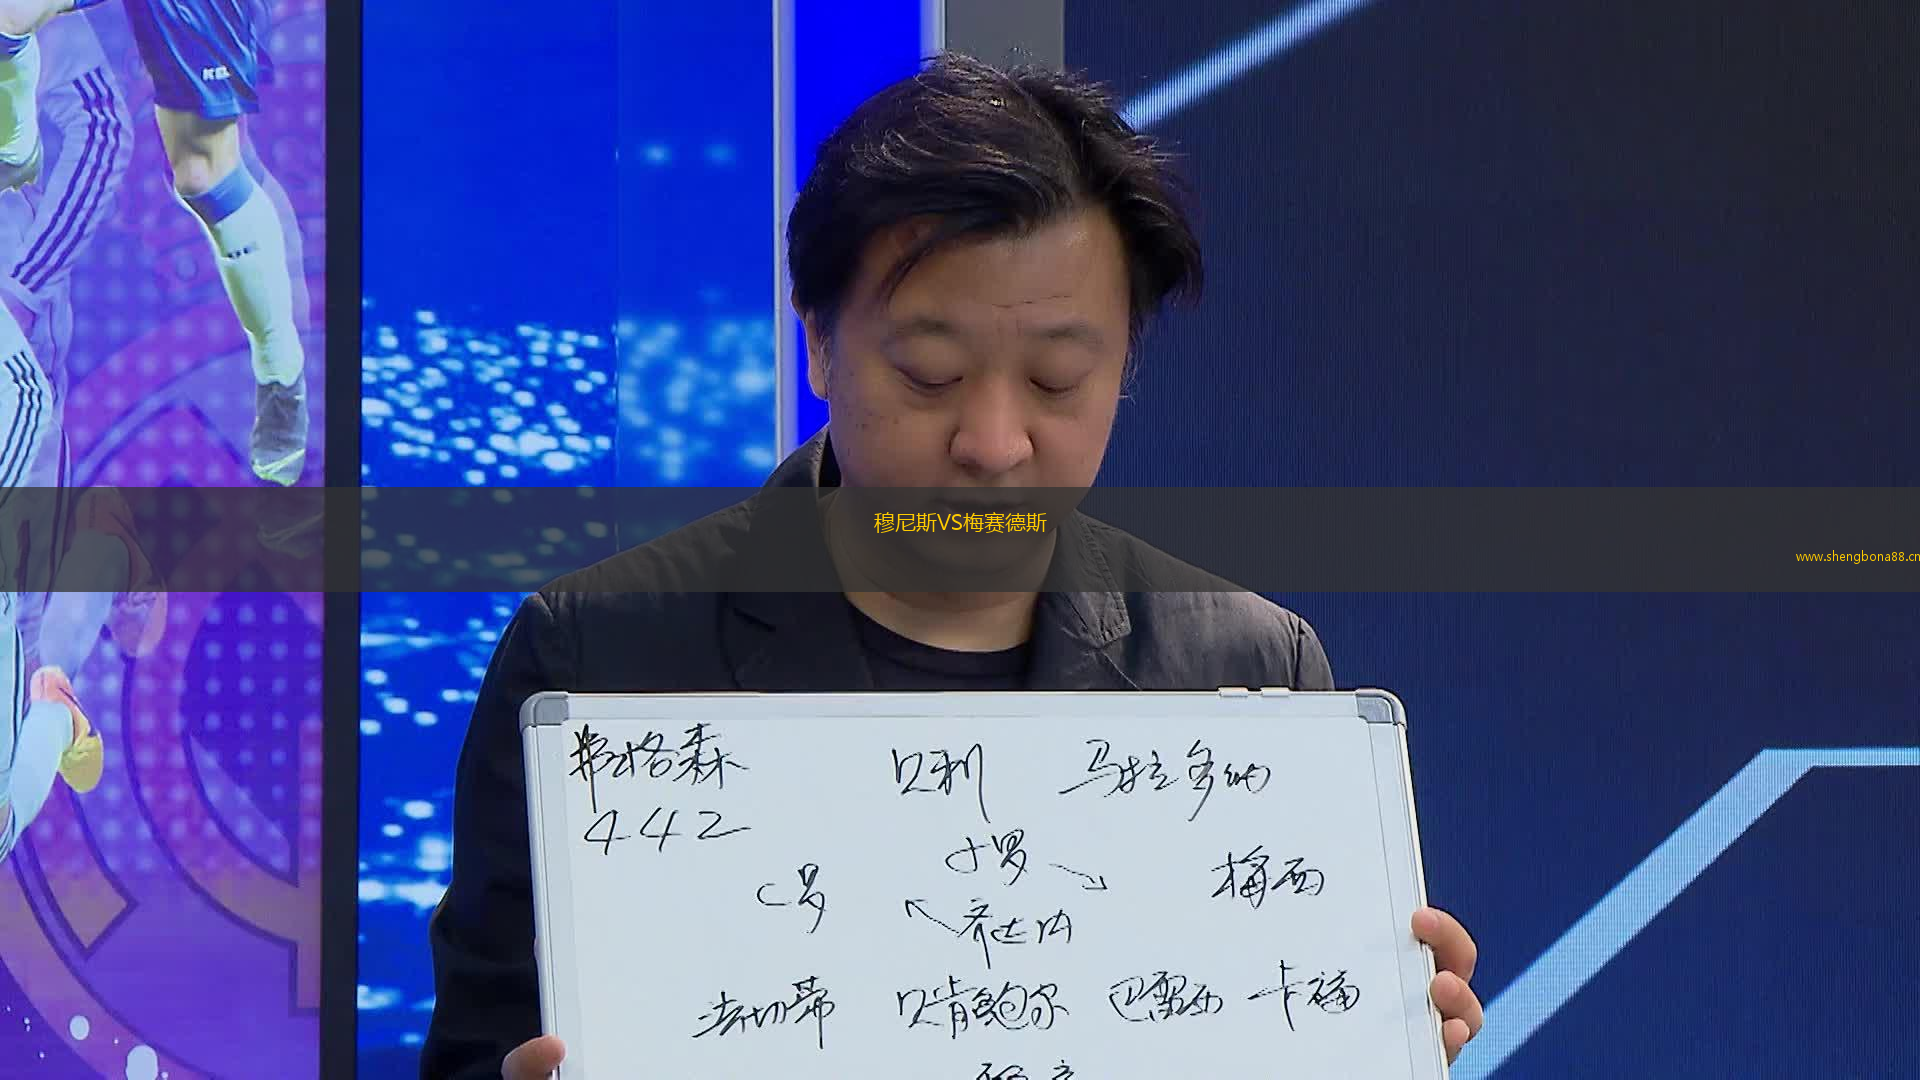 穆尼斯VS梅赛德斯
www.shengbona88.cn
弗格森 贝利 马拉多纳
442
小罗
C罗 梅西
齐达内
法切蒂 贝肯鲍尔 巴雷西 卡福